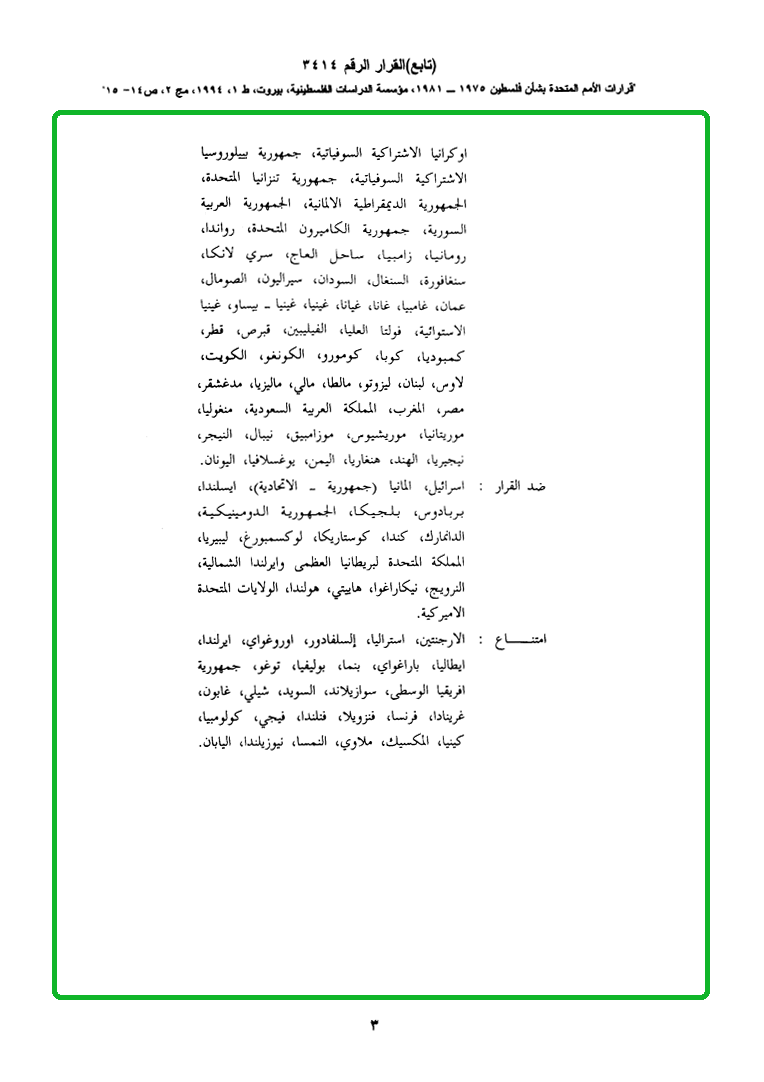 (تابع)القرار الرقم ٣٤١٤
"قرارات الأمم المتحدة بشأن فلسطين ١٩٧٥ ــ ١٩٨١، مؤسسة الدراسات الفلسطينية، بيروت، ط ١، ١٩٩٤، مج ٢، ص١٤- ١٥"
اوكرانيا الاشتراكية السوفياتية، جمهورية بييلوروسيا
الاشتراكية السوفياتية، جمهورية تنزانيا المتحدة،
الجمهورية الديمقراطية الالمانية، الجمهورية العربية
السورية، جمهورية الكاميرون المتحدة، رواندا،
رومانيا، زامبيا، ساحل العاج، سري لانكا،
سنغافورة، السنغال، السودان، سيراليون، الصومال،
عمان، غامبيا، غانا، غيانا، غينيا، غينيا ــ بيساو، غينيا
الاستوائية، فولتا العليا، الفيليبين، قبرص، قطر،
كمبوديا، كوبا، كومورو، الكونغو، الكويت،
لاوس، لبنان، ليزوتو، مالطا، مالي، ماليزيا، مدغشقر،
مصر، المغرب، المملكة العربية السعودية، منغوليا،
موريتانيا، موريشيوس، موزامبيق، نيبال، النيجر،
نيجيريا، الهند، هنغاريا، اليمن، يوغسلافيا، اليونان.
ضد القرار : اسرائيل، المانيا (جمهورية ــ الاتحادية)، ايسلندا،
بربادوس، بلجيكا، الجمهورية الدومينيكية،
الدانمارك، كندا، كوستاريكا، لوكسمبورغ، ليبيريا،
المملكة المتحدة لبريطانيا العظمى وايرلندا الشمالية،
النرويج، نيكاراغوا، هاييتي، هولندا، الولايات المتحدة
الاميركية.
امتنـــــاع : الارجنتين، استراليا، إلسلفادور، اوروغواي، ايرلندا،
ايطاليا، باراغواي، بنما، بوليفيا، توغو، جمهورية
افريقيا الوسطى، سوازيلاند، السويد، شيلي، غابون،
غرينادا، فرنسا، فنزويلا، فنلندا، فيجي، كولومبيا،
كينيا، المكسيك، ملاوي، النمسا، نيوزيلندا، اليابان.
٣